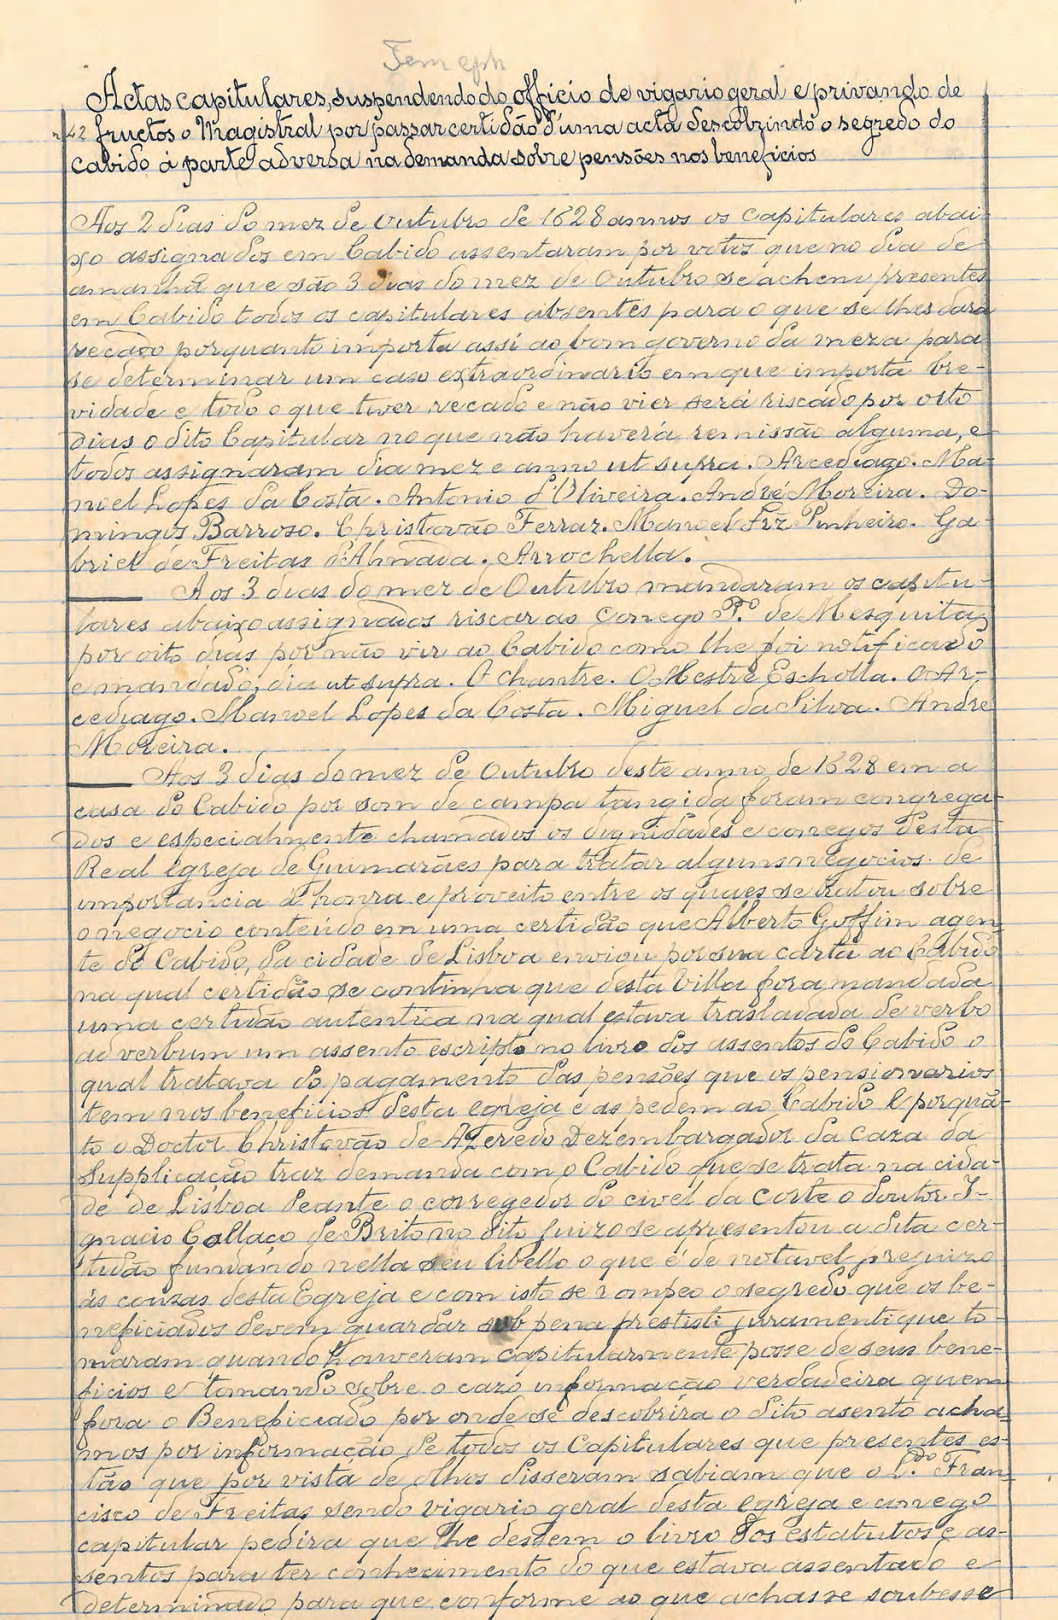 Tem eph
Actas capitulares, suspendendo do officio de vigario geral e privando de
42 fructos o Magistral por passar certidão d'uma acta descobrindo o segredo do
cabido á parte adversa na demanda sobre pensões nos beneficios
Aos 2 dias do mez de Outubro de 1628 annos os capitulares abai-
xo assignados em Cabido assentaram por votos que no dia de
amanhã que são 3 dias do mez de Outubro se achem presentes
em Cabido todos os capitulares absentes para o que se lhes dará
recado porquanto importa assi ao bom governo da meza para
se determinar um caso extraordinario em que importa bre-
vidade e todo o que tiver recado e não vier será riscado por oito
dias o dito Capitular no que não haverá remissão alguma, e
todos assignaram dia mez e anno ut supra. Arcediago. Ma-
noel Lopes da Costa. Antonio d'Oliveira. André Moreira. Do-
mingos Barroso. Christovão Ferraz. Manoel Frz Pinheiro. Ga-
briel de Freitas d'Almada. Arrochella.
Aos 3 dias do mez de Outubro mandaram os capitu-
lares abaixo assignados riscar ao conego P.º de Mesquita
por oito dias por não vir ao Cabido como lhe foi notificado
e mandado, dia ut supra. O Chantre. O Mestre Escholla. O Ar-
cediago. Manoel Lopes da Costa. Miguel da Silva. André
Moreira.
Aos 3 dias do mez de Outubro deste anno de 1628 em a
casa do Cabido por som de campa tangida foram congrega-
dos e especialmente chamados os dignidades e conegos desta
Real Egreja de Guimarães para tratar alguns negocios de
importancia á honra e proveito entre os quaes se tratou sobre
o negocio conteúdo em uma certidão que Alberto Goffim agen-
te do Cabido, da cidade de Lisboa enviou por sua carta ao Cabido
na qual certidão se continha que desta Villa fora mandada
uma certidão autentica na qual estava trasladada de verbo
ad verbum um assento escripto no livro dos assentos do Cabido o
qual tratava do pagamento das pensões que os pensionarios
tem nos beneficios desta egreja e as pedem ao Cabido e porquã-
to o Doctor Christovão de Azeredo Dezembargador da Caza da
Supplicação traz demanda com o Cabido que se trata na cida-
de de Lisboa deante o corregedor do civel da corte o Doutor I-
gnacio Collaço de Brito no dito juizo se apresentou a dita cer-
tidão fundando nella seu libello o que é de notavel prejuizo
ás couzas desta Egreja e com isto se rompeo o segredo que os be-
neficiados devem guardar sub pena prestiti juramenti que to-
maram quando houveram capitularmente posse de seus bene-
ficios e tomando sobre o cazo informação verdadeira quem
fora o Beneficiado por onde se descobrira o dito asento acha-
mos por informação de todos os Capitulares que presentes es-
tão que por vista de olhos disseram sabiam que o L.do Fran-
cisco de Freitas sendo vigario geral desta egreja e conego
capitular pedira que lhe dessem o livro dos estatutos e as-
sentos para ter conhecimento do que estava assentado e
determinado para que conforme ao que achasse soubesse